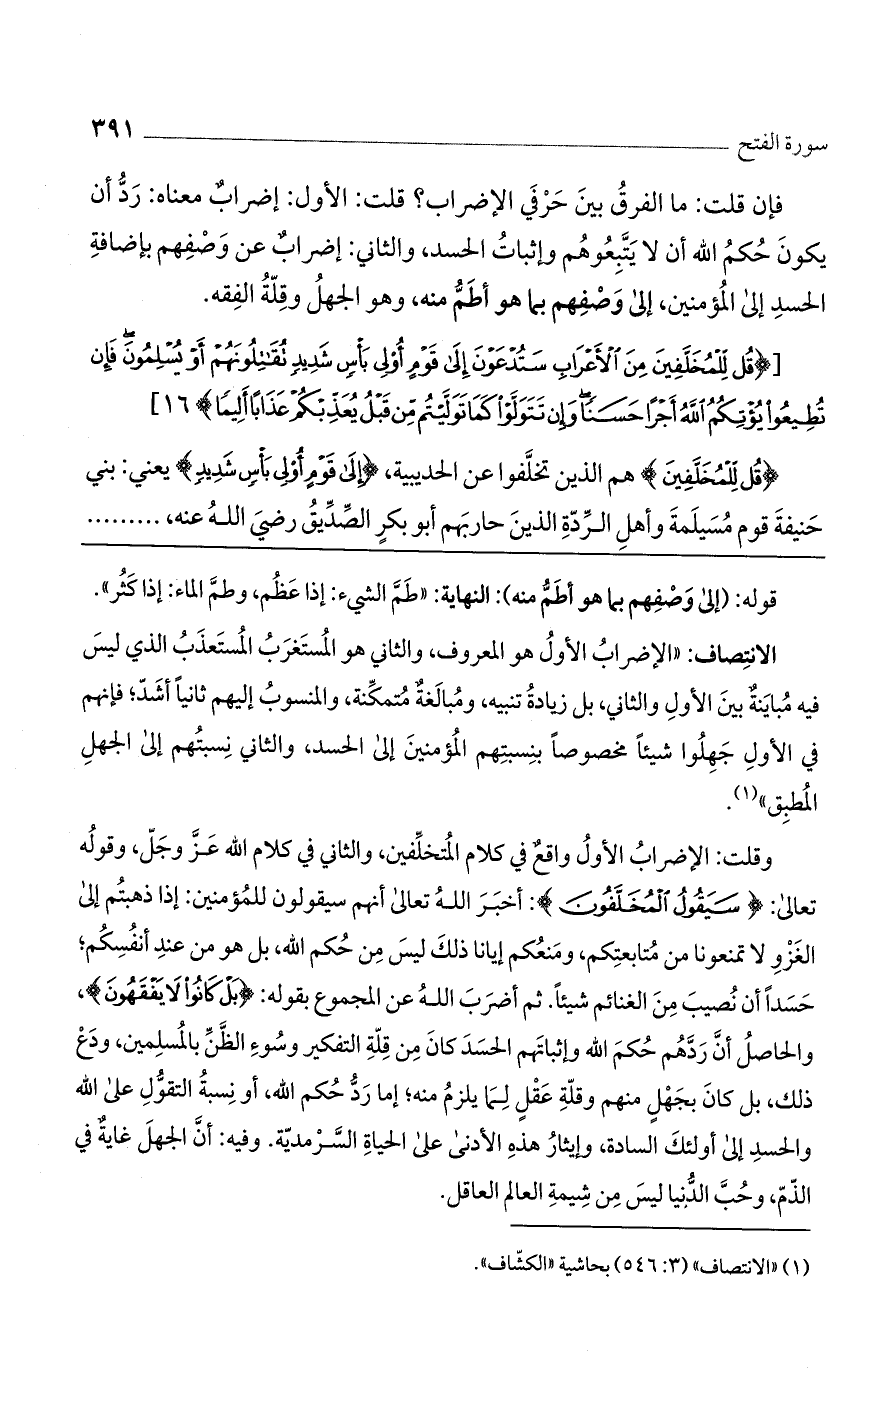 سورة الفتح ٣٩١
فإن قلت: ما الفرقُ بينَ حَرْفَي الإضراب؟ قلت: الأول: إضرابٌ معناه: رَدُّ أن
يكونَ حُكمُ الله أن لا يَتَّبِعُوهُم وإثباتُ الحسد، والثاني: إضرابٌ عن وَصْفِهم بإضافةِ
الحسدِ إلىٰ المُؤمنين، إلىٰ وَصْفِهم بما هو أطَمُّ منه، وهو الجهلُ وقِلّةُ الفِقه.
[﴿قُل لِّلْمُخَلَّفِينَ مِنَ ٱلْأَعْرَابِ سَتُدْعَوْنَ إِلَىٰ قَوْمٍ أُو۟لِى بَأْسٍ شَدِيدٍ تُقَـٰتِلُونَهُمْ أَوْ يُسْلِمُونَ ۖ فَإِن
تُطِيعُوا۟ يُؤْتِكُمُ ٱللَّهُ أَجْرًا حَسَنًا ۖ وَإِن تَتَوَلَّوْا۟ كَمَا تَوَلَّيْتُم مِّن قَبْلُ يُعَذِّبْكُمْ عَذَابًا أَلِيمًا﴾ ١٦]
﴿قُل لِّلْمُخَلَّفِينَ﴾ هم الذين تخلَّفوا عن الحديبية، ﴿إِلَىٰ قَوْمٍ أُو۟لِى بَأْسٍ شَدِيدٍ﴾ يعني: بني
حَنيفةَ قوم مُسَيلمةَ وأهلِ الـرِّدّةِ الذينَ حاربَهم أبو بكرٍ الصِّدِّيقُ رضيَ اللـهُ عنه، .........
قوله: (إلىٰ وَصْفِهم بما هو أطَمُّ منه): النهاية: «طَمَّ الشيء: إذا عَظُم، وطمَّ الماء: إذا كَثُر».
الانتِصاف: «الإضرابُ الأولُ هو المعروف، والثاني هو المُستَغرَبُ المُستَعذَبُ الذي ليسَ
فيه مُبايَنةٌ بينَ الأولِ والثاني، بل زيادةُ تنبيه، ومُبالَغةٌ مُتمكِّنة، والمنسوبُ إليهم ثانياً أشَدّ؛ فإنهم
في الأولِ جَهِلُوا شيئاً مخصوصاً بنِسبتِهم المُؤمنينَ إلىٰ الحسد، والثاني نِسبتُهم إلىٰ الجهلِ
المُطبِق»(١).
وقلت: الإضرابُ الأولُ واقعٌ في كلام المُتخلِّفين، والثاني في كلام الله عَـزَّ وجَلّ، وقولُه
تعالىٰ: ﴿سَيَقُولُ ٱلْمُخَلَّفُونَ﴾: أخبَرَ اللـهُ تعالىٰ أنهم سيقولون للمُؤمنين: إذا ذهبتُم إلىٰ
الغَزْوِ لا تمنعونا من مُتابعتِكم، ومَنعُكم إيانا ذلكَ ليسَ مِن حُكم الله، بل هو من عندِ أنفُسِكُم؛
حَسَداً أن نُصيبَ مِنَ الغنائم شيئاً. ثم أضرَبَ اللـهُ عن المجموع بقوله: ﴿بَلْ كَانُوا۟ لَا يَفْقَهُونَ﴾،
والحاصلُ أنَّ رَدَّهُم حُكمَ الله وإثباتَهم الحسَدَ كانَ مِن قِلّةِ التفكير وسُوءِ الظَّنِّ بالمُسلِمين، ودَعْ
ذلك، بل كانَ بجَهْلٍ منهم وقلّةِ عَقْلٍ لِـمَا يلزمُ منه؛ إما رَدُّ حُكم الله، أو نِسبةُ التقوُّل علىٰ الله
والحسدِ إلىٰ أولئكَ السادة، وإيثارُ هذهِ الأدنىٰ علىٰ الحياةِ السَّـرْمديّة. وفيه: أنَّ الجهلَ غايةٌ في
الذّمّ، وحُبَّ الدُّنيا ليسَ مِن شِيمةِ العالم العاقل.
(١) «الانتصاف» (٣: ٥٤٦) بحاشية «الكشّاف».